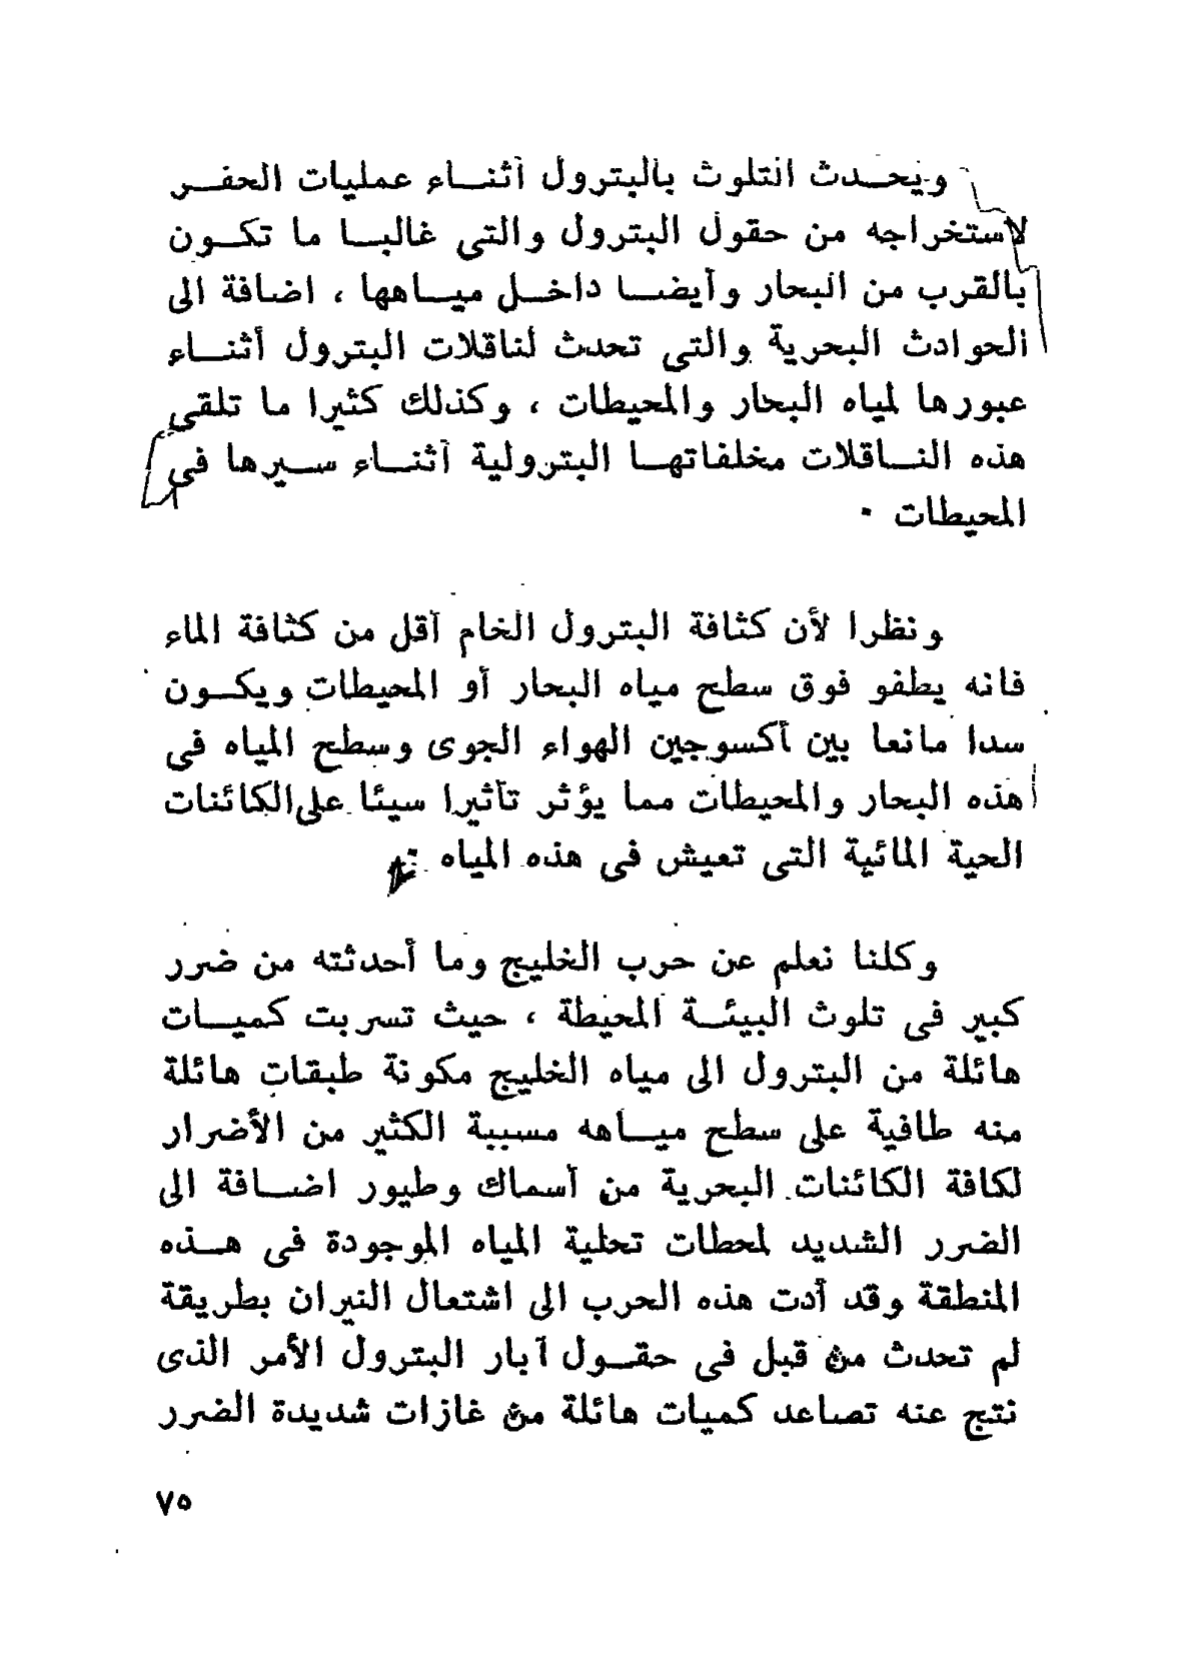 ويحدث التلوث بالبترول أثناء عمليات الحفر
لاستخراجه من حقول البترول والتى غالبا ما تكون
بالقرب من البحار وأيضا داخل مياهها ، اضافة الى
الحوادث البحرية والتى تحدث لناقلات البترول أثناء
عبورها لمياه البحار والمحيطات ، وكذلك كثيرا ما تلقى
هذه الناقلات مخلفاتها البترولية أثناء سيرها فى
المحيطات ٠
ونظرا لأن كثافة البترول الخام أقل من كثافة الماء
فانه يطفو فوق سطح مياه البحار أو المحيطات ويكون
سدا مانعا بين أكسوجين الهواء الجوى وسطح المياه فى
هذه البحار والمحيطات مما يؤثر تأثيرا سيئا على الكائنات
الحية المائية التى تعيش فى هذه المياه ٠
وكلنا نعلم عن حرب الخليج وما أحدثته من ضرر
كبير فى تلوث البيئة المحيطة ، حيث تسربت كميات
هائلة من البترول الى مياه الخليج مكونة طبقات هائلة
منه طافية على سطح مياهه مسببة الكثير من الأضرار
لكافة الكائنات البحرية من أسماك وطيور اضافة الى
الضرر الشديد لمحطات تحلية المياه الموجودة فى هذه
المنطقة وقد أدت هذه الحرب الى اشتعال النيران بطريقة
لم تحدث من قبل فى حقول آبار البترول الأمر الذى
نتج عنه تصاعد كميات هائلة من غازات شديدة الضرر
٧٥